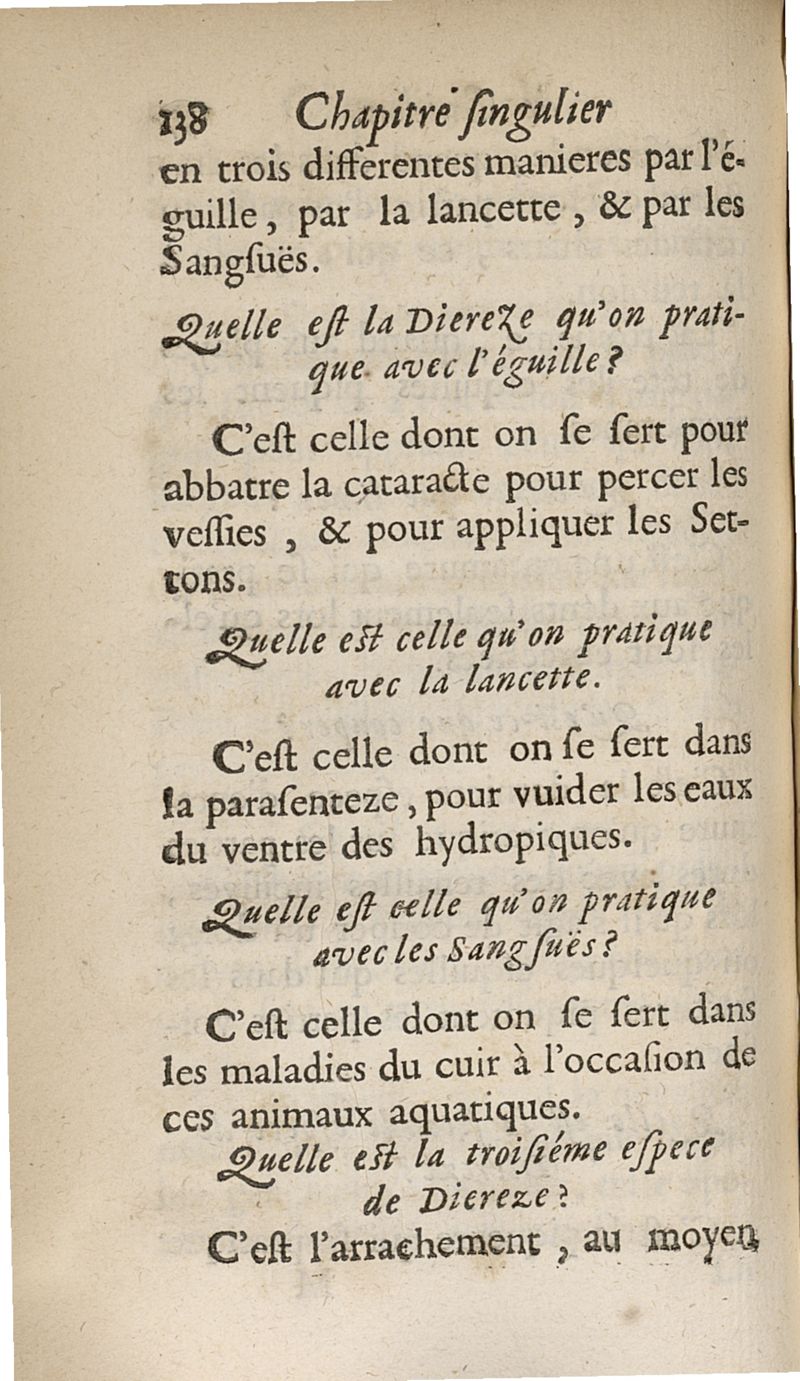 138 Chapitre ſingulier
en trois differentes manieres par l'é-
guille, par la lancette, & par les
Sangſuës.
Quelle eſt la Diereze qu'on prati-
que avec l'éguille?
C'eſt celle dont on ſe ſert pour
abbatre la cataracte pour percer les
veſſies, & pour appliquer les Set-
tons.
Quelle eſt celle qu'on pratique
avec la lancette.
C'eſt celle dont on ſe ſert dans
la paraſenteze, pour vuider les eaux
du ventre des hydropiques.
Quelle eſt celle qu'on pratique
avec les Sangſuës?
C'eſt celle dont on ſe ſert dans
les maladies du cuir à l'occaſion de
ces animaux aquatiques.
Quelle eſt la troiſiéme eſpece
de Diereze?
C'eſt l'arrachement, au moyen